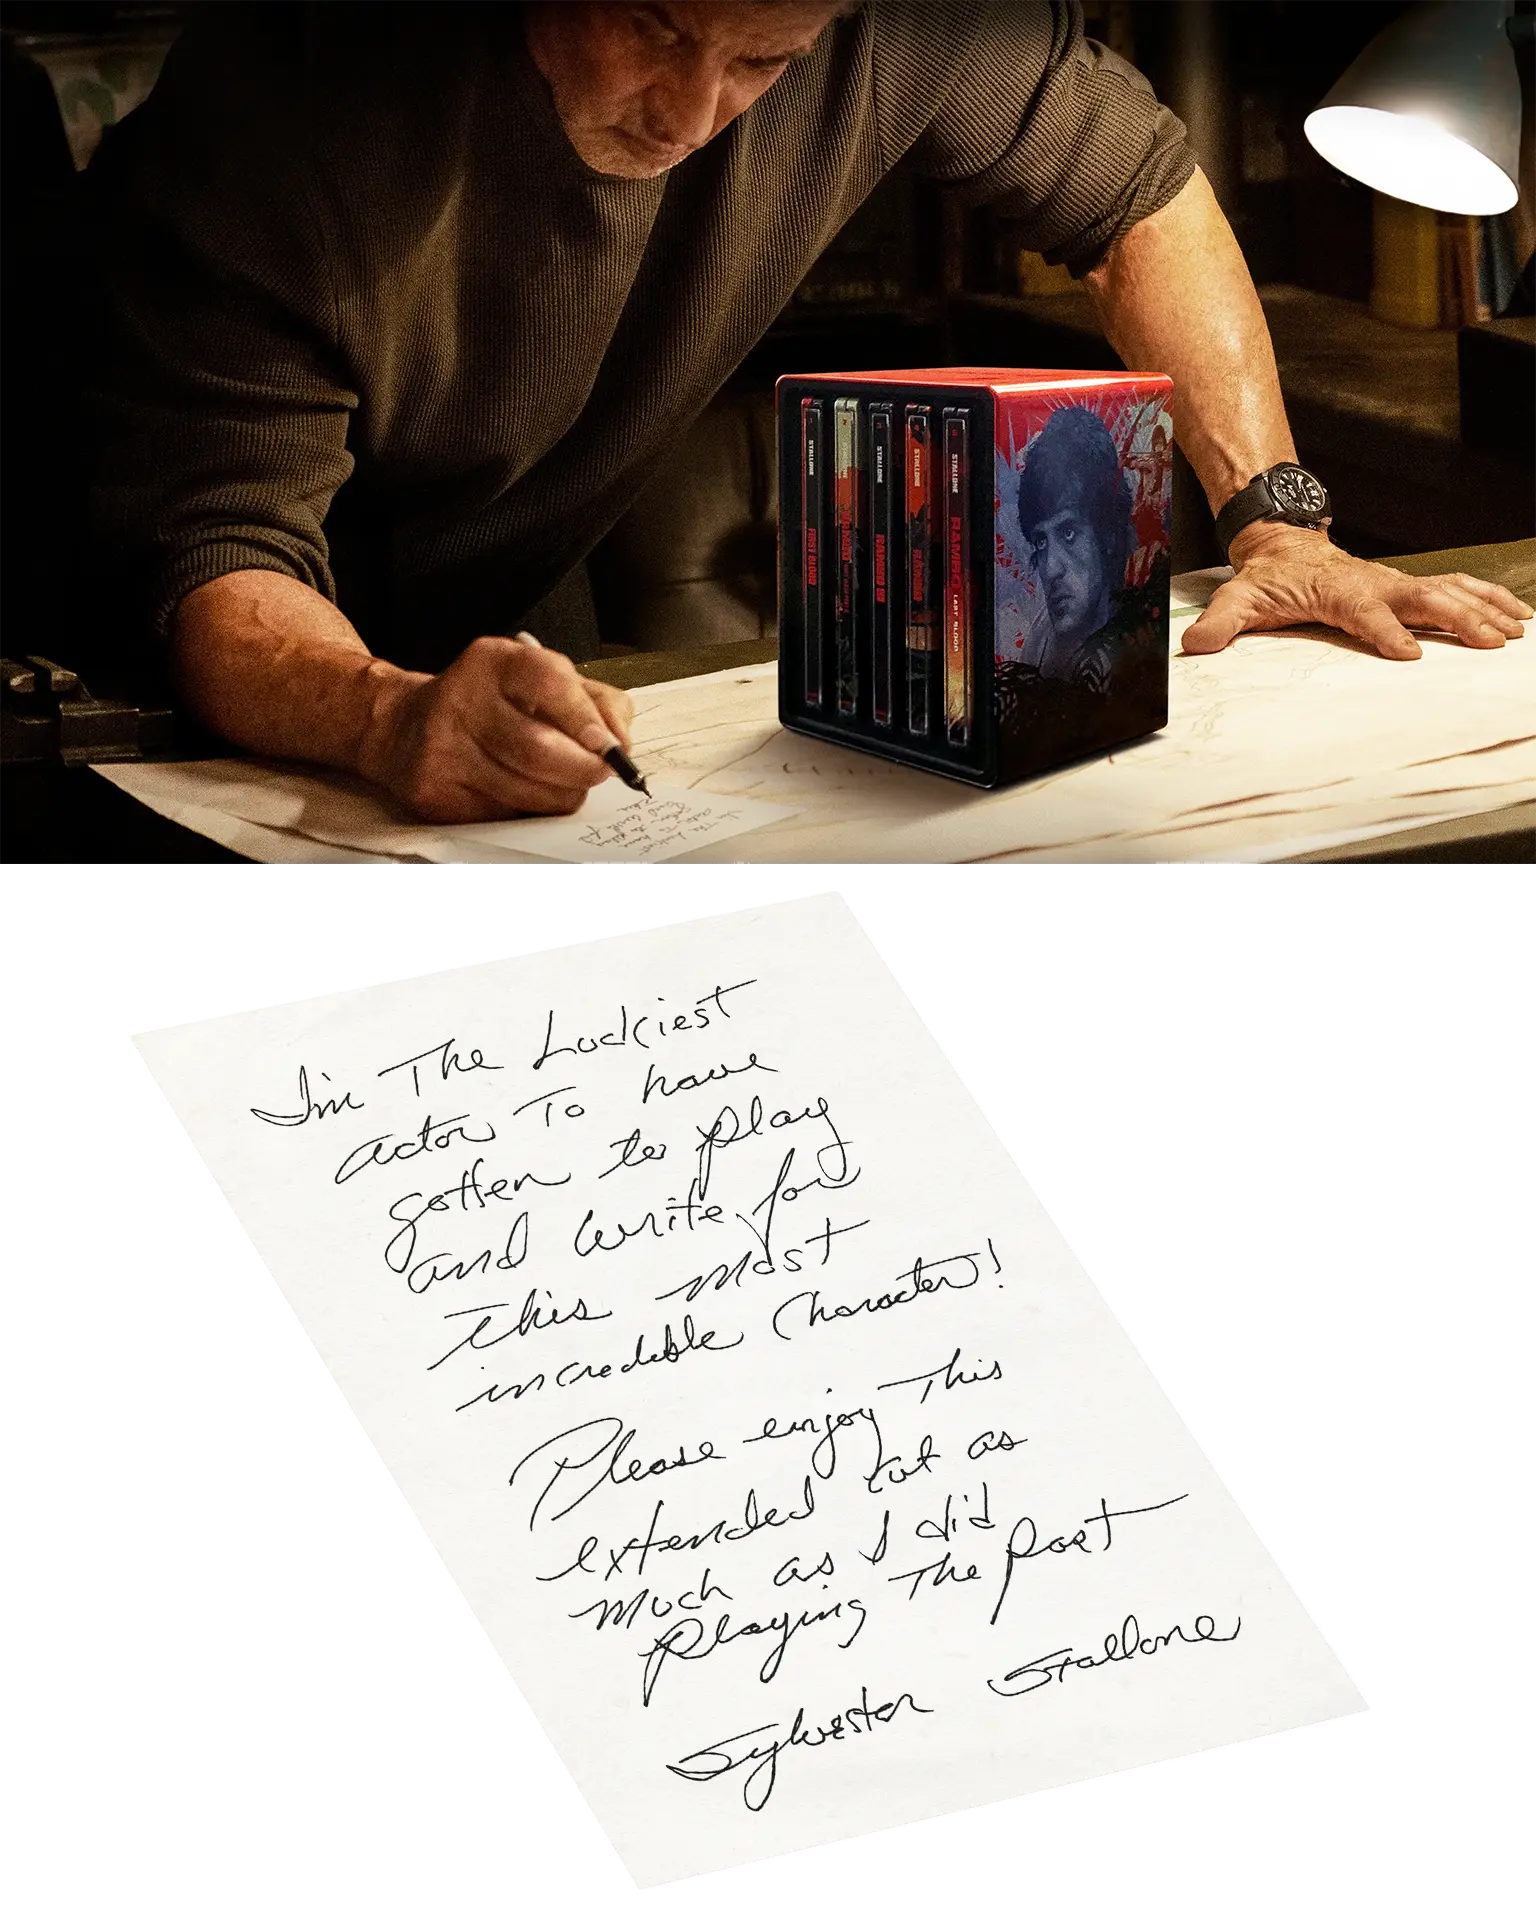 STALLONE FIRST BLOOD
STALLONE RAMBO
STALLONE RAMBO III
STALLONE RAMBO
STALLONE RAMBO LAST BLOOD
I'm The Luckiest
actor To have
gotten to play
and write for
this most
incredible Character!
Please enjoy This
extended cut as
much as I did
playing The part
Sylvester Stallone